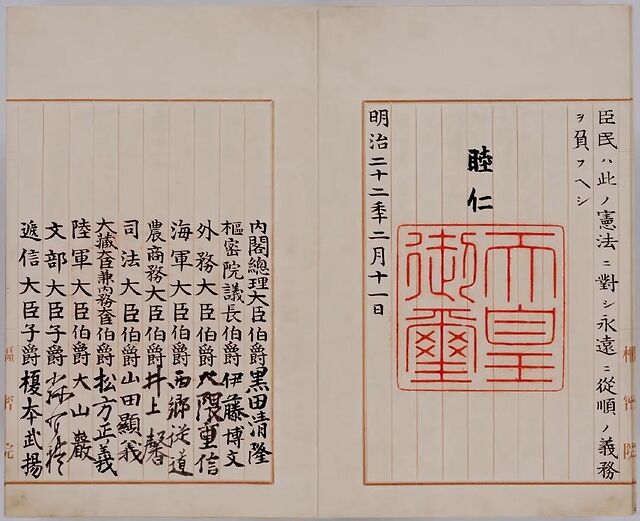 臣民ハ此ノ憲法ニ對シ永遠ニ從順ノ義務
ヲ負フヘシ
睦仁
天皇
御璽
明治二十二年二月十一日
内閣總理大臣伯爵黒田清隆
樞密院議長伯爵伊藤博文
外務大臣伯爵大隈重信
海軍大臣伯爵西郷従道
農商務大臣伯爵井上馨
司法大臣伯爵山田顯義
大藏大臣兼内務大臣伯爵松方正義
陸軍大臣伯爵大山巖
文部大臣子爵
遞信大臣子爵榎本武揚
樞密院